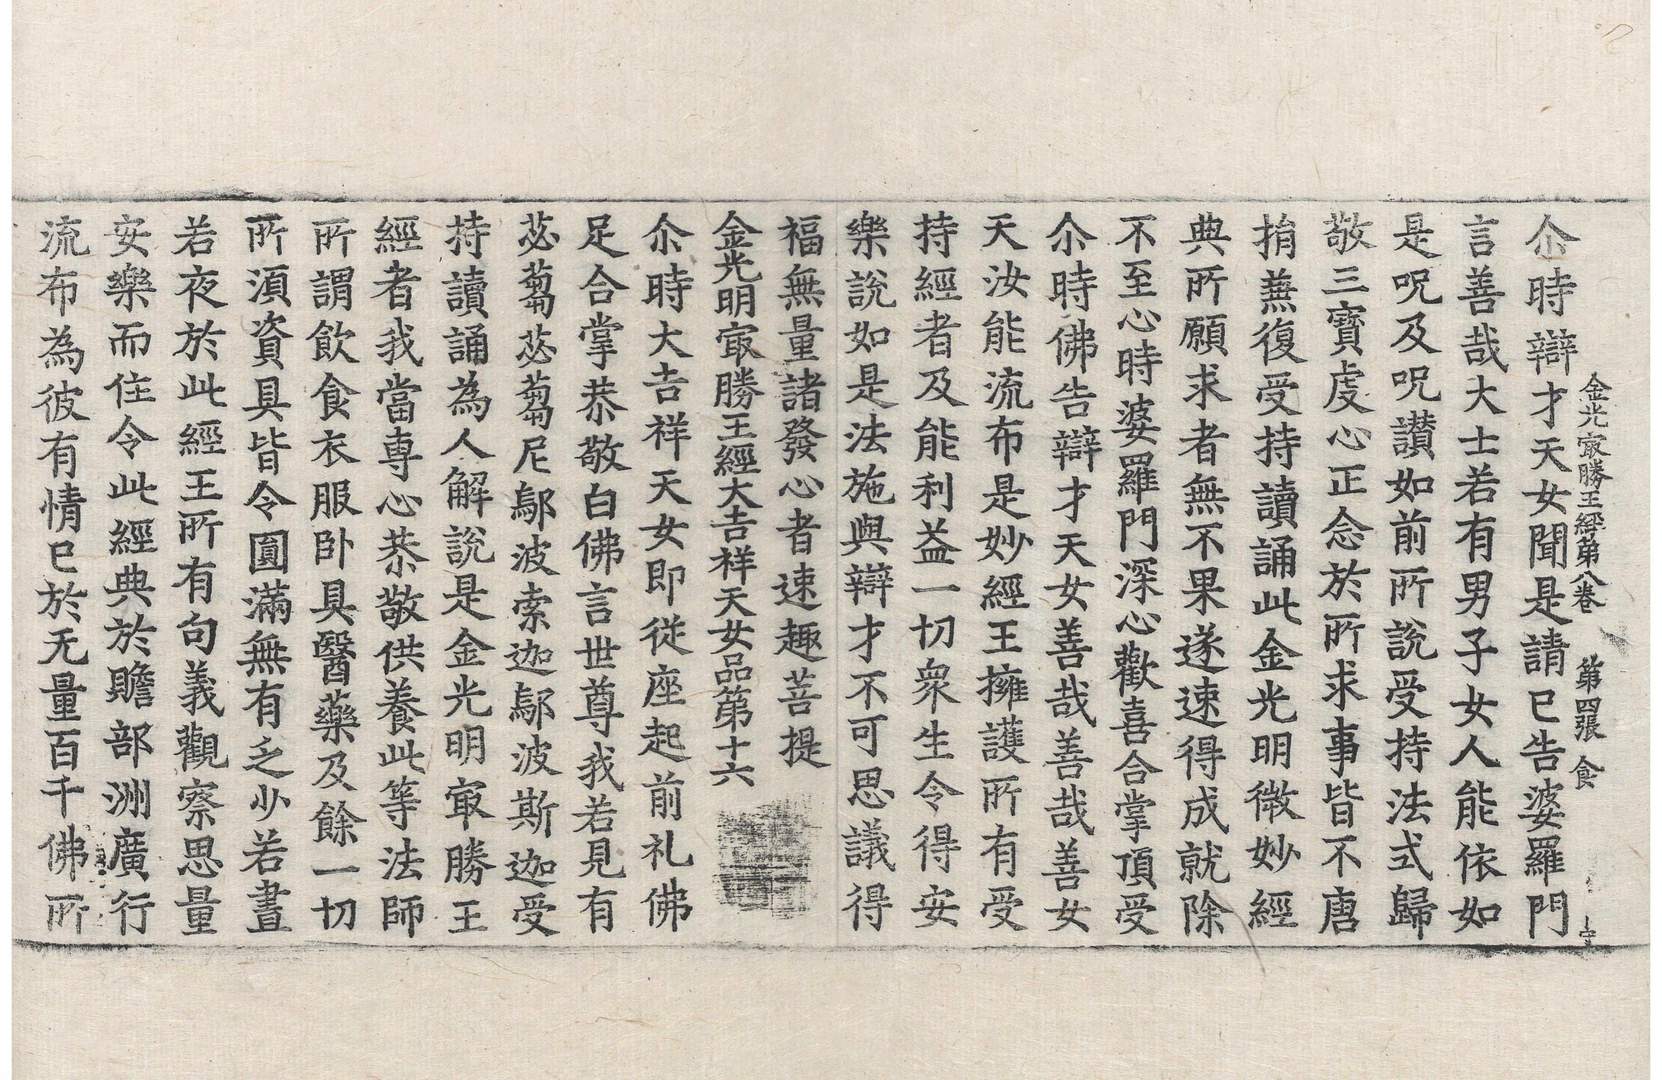 金光㝡勝王經第八卷 第四張 食
尒時辯才天女聞是請已告婆羅門
言善哉大士若有男子女人能依如
是呪及呪讃如前所說受持法式歸
敬三寶虔心正念於所求事皆不唐
捐兼復受持讀誦此金光明微妙經
典所願求者無不果遂速得成就除
不至心時婆羅門深心歡喜合掌頂受
尒時佛告辯才天女善哉善哉善女
天汝能流布是妙經王擁護所有受
持經者及能利益一切衆生令得安
樂說如是法施與辯才不可思議得
福無量諸發心者速趣菩提
金光明㝡勝王經大吉祥天女品第十六
尒時大吉祥天女即從座起前礼佛
足合掌恭敬白佛言世尊我若見有
苾蒭苾蒭尼鄔波索迦鄔波斯迦受
持讀誦為人解說是金光明㝡勝王
經者我當專心恭敬供養此等法師
所謂飲食衣服卧具醫藥及餘一切
所須資具皆令圓滿無有乏少若晝
若夜於此經王所有句義觀察思量
安樂而住令此經典於贍部洲廣行
流布為彼有情已於无量百千佛所